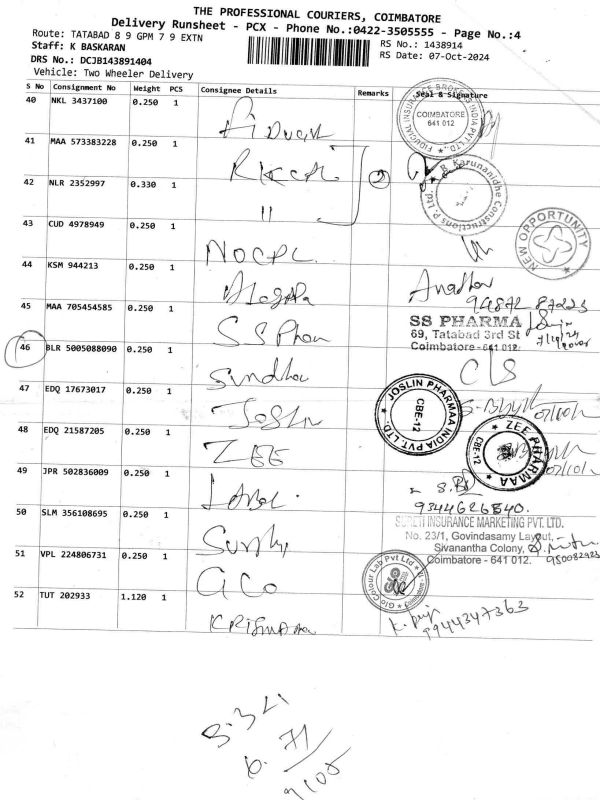 THE PROFESSIONAL COURIERS, COIMBATORE
Delivery Runsheet - PCX - Phone No.:0422-3505555 - Page No.:4
Route: TATABAD 8 9 GPM 7 9 EXTN
RS No.: 1438914
Staff: K BASKARAN
RS Date: 07-Oct-2024
DRS No.: DCJB143891404
Vehicle: Two Wheeler Delivery
S No Consignment No Weight PCS Consignee Details Remarks Seal & Signature
40 NKL 3437100 0.250 1
FIDUCIAL INSURANCE BROKERS INDIA PVT LTD.
COIMBATORE
641 012
41 MAA 573383228 0.250 1 RKCPL 2
42 NLR 2352997 0.330 1 "
R. Karunanidhe Constructions P. Ltd.
43 CUD 4978949 0.250 1 NOCPL
NEW OPPORTUNITY
44 KSM 944213 0.250 1
45 MAA 705454585 0.250 1 SS Phar
SS PHARMA
69, Tatabad 3rd St
Coimbatore - 641 012.
46 BLR 5005088090 0.250 1 Sindhu
47 EDQ 17673017 0.250 1 Joslin
JOSLIN PHARMAA INDIA PVT. LTD.
CBE-12
48 EDQ 21587205 0.250 1 ZEE
ZEE PHARMAA
CBE-12
49 JPR 502836009 0.250 1
9344626840.
50 SLM 356108695 0.250 1
SURETI INSURANCE MARKETING PVT. LTD.
No. 23/1, Govindasamy Layout,
Sivanantha Colony,
Coimbatore - 641 012.
51 VPL 224806731 0.250 1 GCo
Glo Colour Lab Pvt Ltd
52 TUT 202933 1.120 1
9944347363